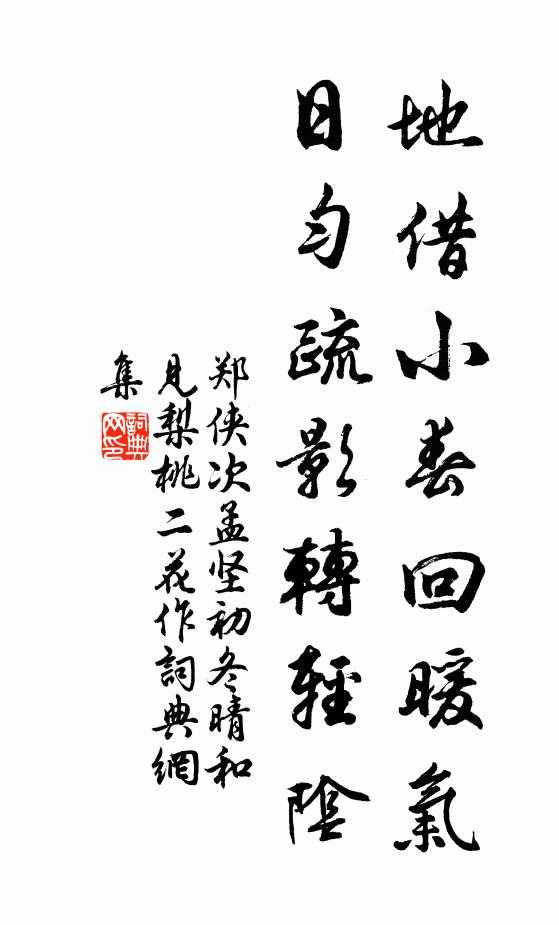 地借小春回暖氣
日勻疏影轉輕陰
郑侠次孟坚初冬晴和
見梨桃二花作詞典網
集
詞典网印